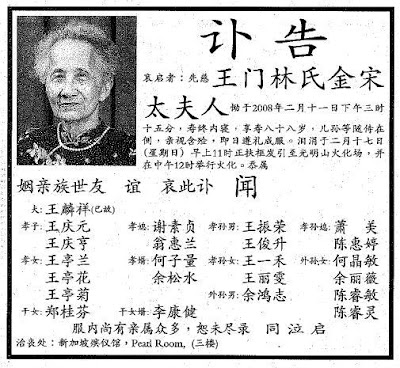 讣告
哀启者：先慈 王门林氏金宋
太夫人 恸于2008年二月十一日下午三时
十五分，寿终内寝，享寿八十八岁，儿孙等随侍在
侧，亲视含殓，即日遵礼成服。泪涓于二月十七日
(星期日) 早上11时正扶柩发引至光明山火化场，并
在中午12时举行火化。忝属
姻亲族世友 谊 哀此讣 闻
夫：王麟祥(已故)
孝子：王庆元 孝媳：谢素贞 孝孙男：王振荣 孝孙媳：萧 美
王庆亨 翁惠兰 王俊升 陈惠婷
孝女：王亭兰 孝婿：何子量 孝孙女：王一禾 外孙女：何晶敏
王亭花 余松水 王丽雯 余丽薇
王亭菊 外孙男：余鸿志 陈睿敏
干女：郑桂芬 干女婿：李康健 陈睿灵
服内尚有亲属众多，恕未尽录 同泣启
治丧处：新加坡殡仪馆，Pearl Room, (三楼)